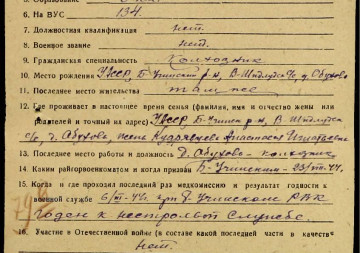 5. Образование
6. На ВУС 134.
7. Должностная квалификация нет.
8. Военное звание нет.
9. Гражданская специальность Колхозник
10. Место рождения УАССР, Б-Учинский р-н, В- с/с, д. Абухово
11. Последнее место жительства там же
12. Где проживает в настоящее время семья (фамилия, имя и отчество жены или
родителей и точный их адрес) УАССР, Б-Учин. р-н, В
с/с, д. Абухово, жена Кудрявцева Анастасия Игнатьевна
13. Последнее место работы и должность д. Абухово - колхозник
14. Каким райгорвоенкоматом и когда призван Б-Учинским - 23/III-44г.
15. Когда и где проходил последний раз медкомиссию и результат годности к
военной службе 6/III-44г. при Б-Учинском РВК
Годен к нестроевой службе.
16. Участие в Отечественной войне (в составе какой последней части в качеств
нет.